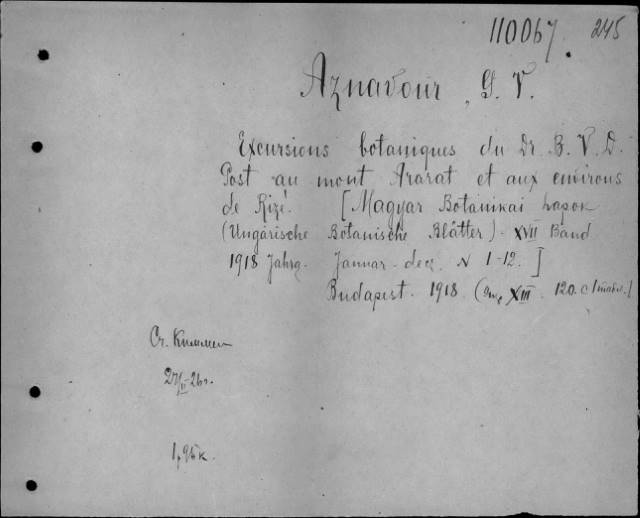 110067. 245
Aznavour, G. V.
Excursions botaniques du Dr. B. V. D.
Post au mont Ararat et aux environs
de Rizé. [Magyar Botanikai Lapok
(Ungarische Botanische Blätter). XVII Band
1918 Jahrg. Januar-dec. N 1-12.]
Budapest. 1918. ( XIII. 120. с 1 табл.)
Ст.
1,95к.